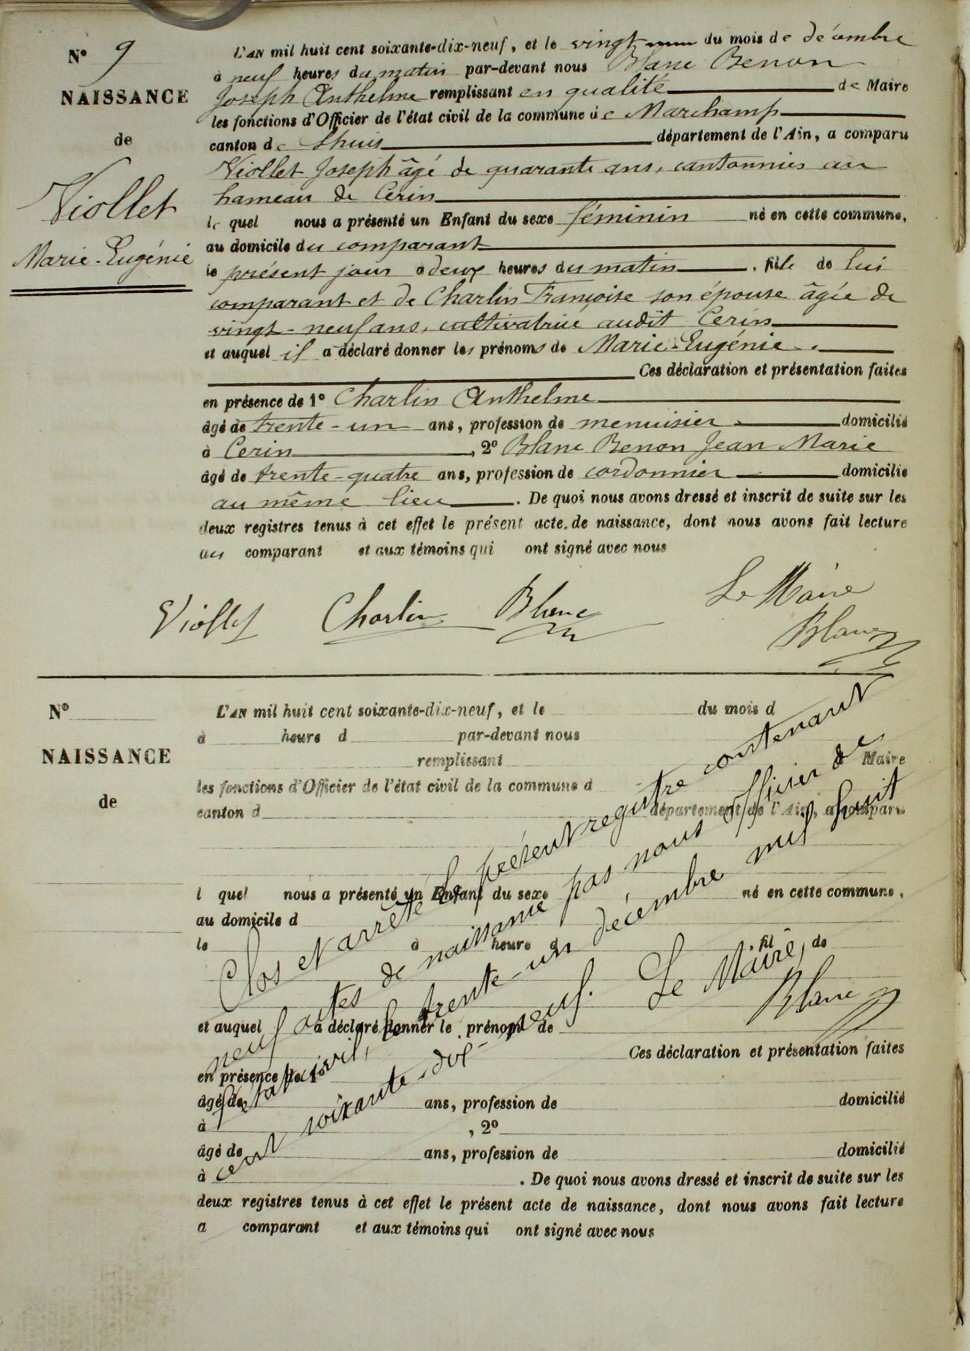 N° 9
NAISSANCE
de
Viollet
Marie-Eugénie
L'AN mil huit cent soixante-dix-neuf, et le vingt du mois de décembre
à neuf heures du matin par-devant nous Blanc Benon
Joseph Anthelme remplissant en qualité de Maire
les fonctions d'Officier de l'état civil de la commune de Marchamp
canton de Lhuis département de l'Ain, a comparu
Viollet Joseph âgé de quarante ans, cantonnier au
hameau de Cerin
le quel nous a présenté un Enfant du sexe féminin né en cette commune,
au domicile du comparant
le présent jour à deux heures du matin, fille de lui
comparant et de Charlin Françoise son épouse âgée de
vingt-neuf ans, cultivatrice audit Cerin
et auquel il a déclaré donner les prénoms de Marie-Eugénie.
Ces déclaration et présentation faites
en présence de 1° Charlin Anthelme
âgé de trente-un ans, profession de menuisier domicilié
à Cerin, 2° Blanc Benon Jean Marie
âgé de trente-quatre ans, profession de cordonnier domicilié
au même lieu. De quoi nous avons dressé et inscrit de suite sur les
deux registres tenus à cet effet le présent acte de naissance, dont nous avons fait lecture
au comparant et aux témoins qui ont signé avec nous
Viollet Charlin Blanc Le Maire
Blanc
N°
NAISSANCE
de
L'AN mil huit cent soixante-dix-neuf, et le du mois d
à heure d par-devant nous
remplissant Maire
les fonctions d'Officier de l'état civil de la commune d
canton d département de l'Ain, a comparu
l quel nous a présenté un Enfant du sexe né en cette commune,
au domicile d
le à heure d fil de
et auquel a déclaré donner le prénom de
Ces déclaration et présentation faites
en présence de 1°
âgé de ans, profession de domicilié
à , 2°
âgé de ans, profession de domicilié
à . De quoi nous avons dressé et inscrit de suite sur les
deux registres tenus à cet effet le présent acte de naissance, dont nous avons fait lecture
a comparant et aux témoins qui ont signé avec nous
Clos et arrêté le présent registre contenant
neuf actes de naissance pas nous officier de
l'état civil, le trente-un décembre mil huit
cent soixante-dix-neuf. Le Maire,
Blanc